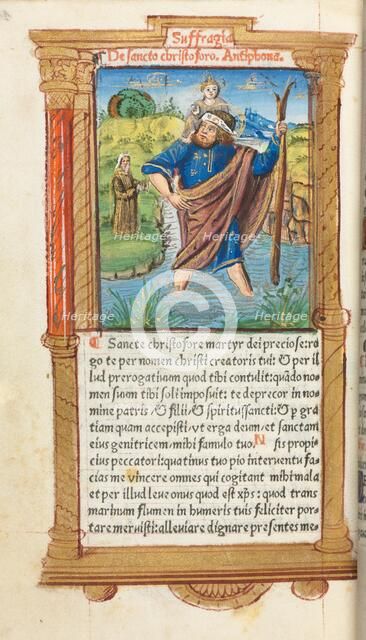 Suffragia
De sancto christoforo. Antiphona.
Sancte christofore martyr dei preciose: ro
go te per nomen christi creatoris tui: & per il
lud prerogatiuum quod tibi contulit: quãdo no
men suum tibi soli imposuit: te deprecor in no
mine patris, & filii, & spiritussancti: & ꝑ gra
tiam quam accepisti, vt erga deum, et sanctam
eius genitricem, mihi famulo tuo, N sis propi
cius peccatori: quatinus tuo pio interuentu fa
cias me vincere omnes qui cogitant mihi mala
et per illud leue onus quod est xp̃s: quod trans
marinum flumen in humeris tuis feliciter por
tare meruisti: alleuiare dignare presentes me
Heritage
Heritage
Heritage
Heritage
Heritage
Heritage